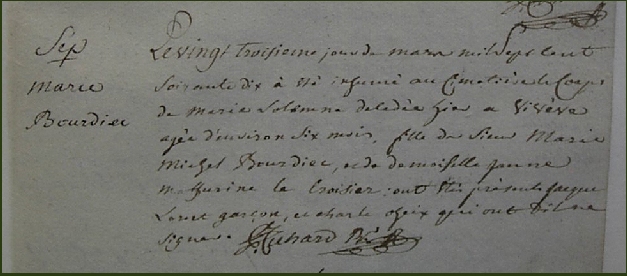 Sep
marie
Bourdiec
Le vingt troisieme jour de mars mil Sept Cent
Soixante dix à été inhumé au Cimetière le Corps
de marie Solemne decedée hier a
agée d'environ Six mois, fille du Sieur Marie
Michel Bourdiec, et de demoiselle
mathurine le Croisier; ont été présents Jacque
Louet garçon, et charle cheux qui ont dit ne
signer Richard